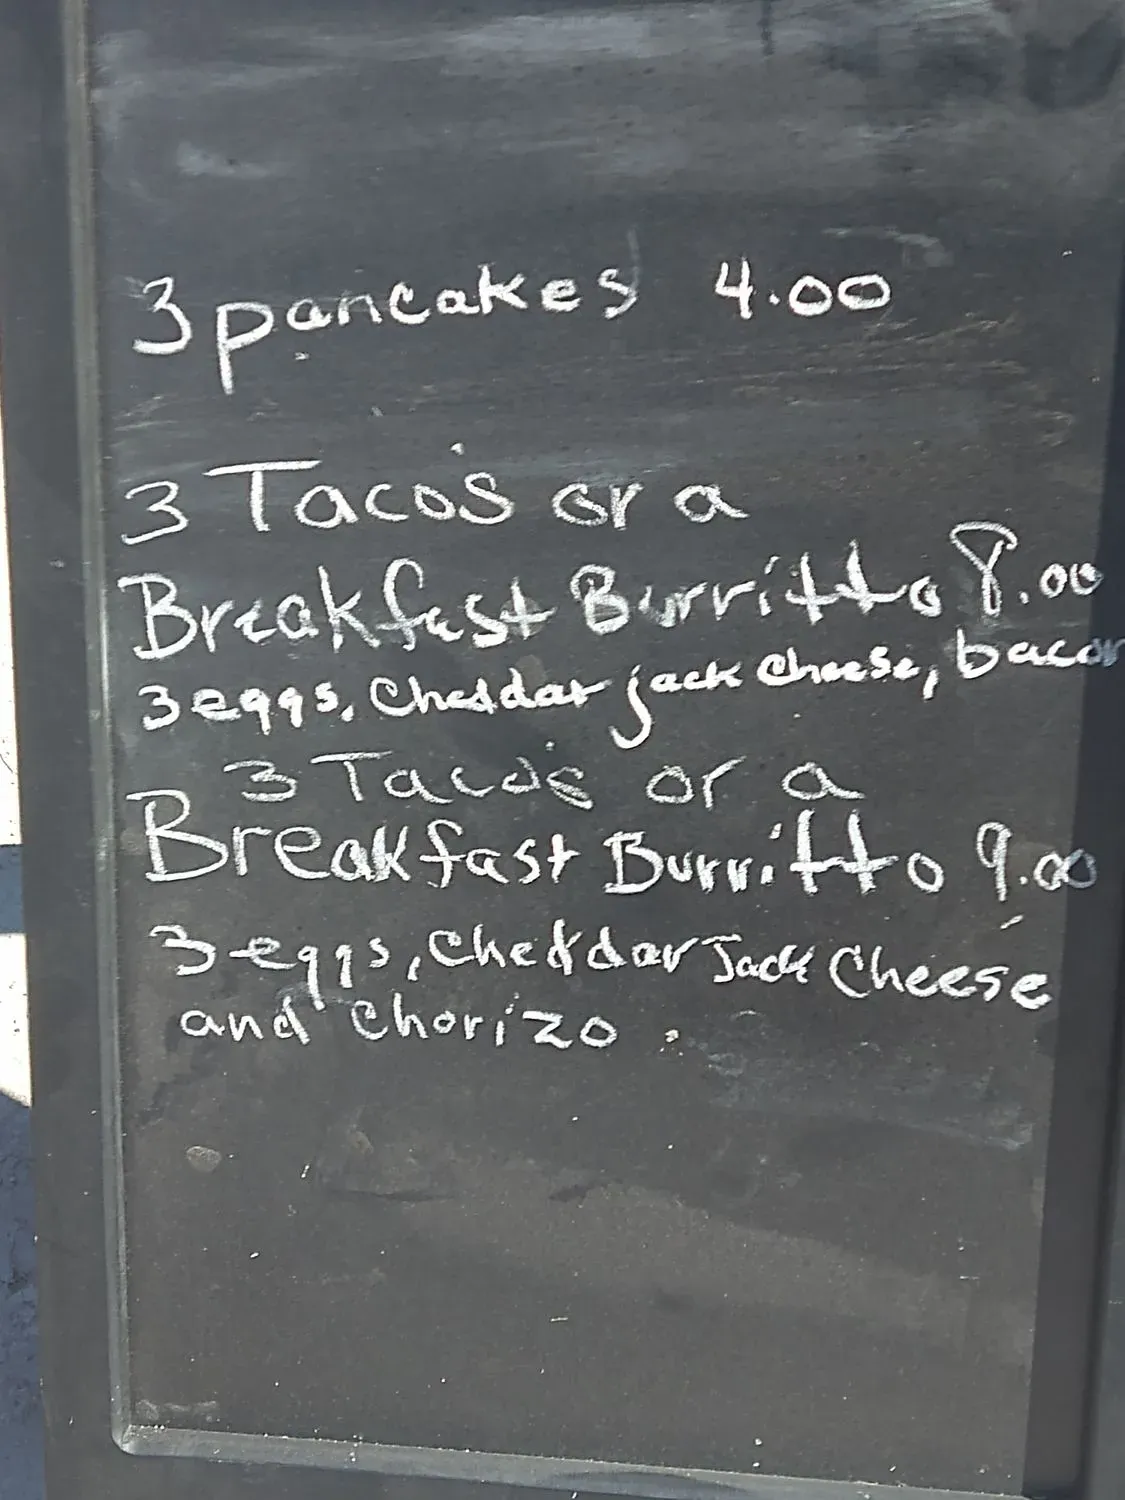 3 pancakes 4.00
3 Taco's or a
Breakfast Burritto 8.00
3 eggs, Cheddar jack Cheese, bacon
3 Taco's or a
Breakfast Burritto 9.00
3 eggs, Cheddar Jack Cheese
and Chorizo.